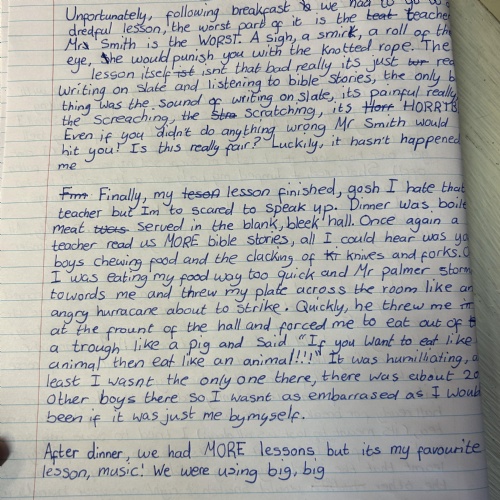 Unfortunately, following breakfast we had to go to
dredful lesson, the worst part of it is the teat teacher
Mr Smith is the WORST. A sigh, a smirk, a roll of the
eye, he would punish you with the knotted rope. The
lesson itself ist isnt that bad really its just wr rea
writing on slate and listening to bible stories, the only b
thing was the sound of writing on slate, its painful really
the screaching, the Stra scratching, its Horr HORRIB
Even if you didn't do anything wrong Mr Smith would
hit you! Is this really fair? Luckily, it hasn't happened
me
Frm Finally, my leson lesson finished, gosh I hate that
teacher but Im to scared to speak up. Dinner was boile
meat served in the blank, bleek hall. Once again a
teacher read us MORE bible stories, all I could hear was yo
boys chewing food and the clacking of kr knives and forks. O
I was eating my food way too quick and Mr palmer storm
towards me and threw my plate across the room like an
angry hurracane about to strike. Quickly, he threw me in
at the frount of the hall and forced me to eat out of
a trough like a pig and said "If you want to eat like
animal then eat like an animal!!!" It was humilliating, a
least I wasnt the only one there, there was about 20
other boys there so I wasnt as embarrased as I would
been if it was just me bymyself.
After dinner, we had MORE lessons but its my favourite
lesson, music! We were using big, big